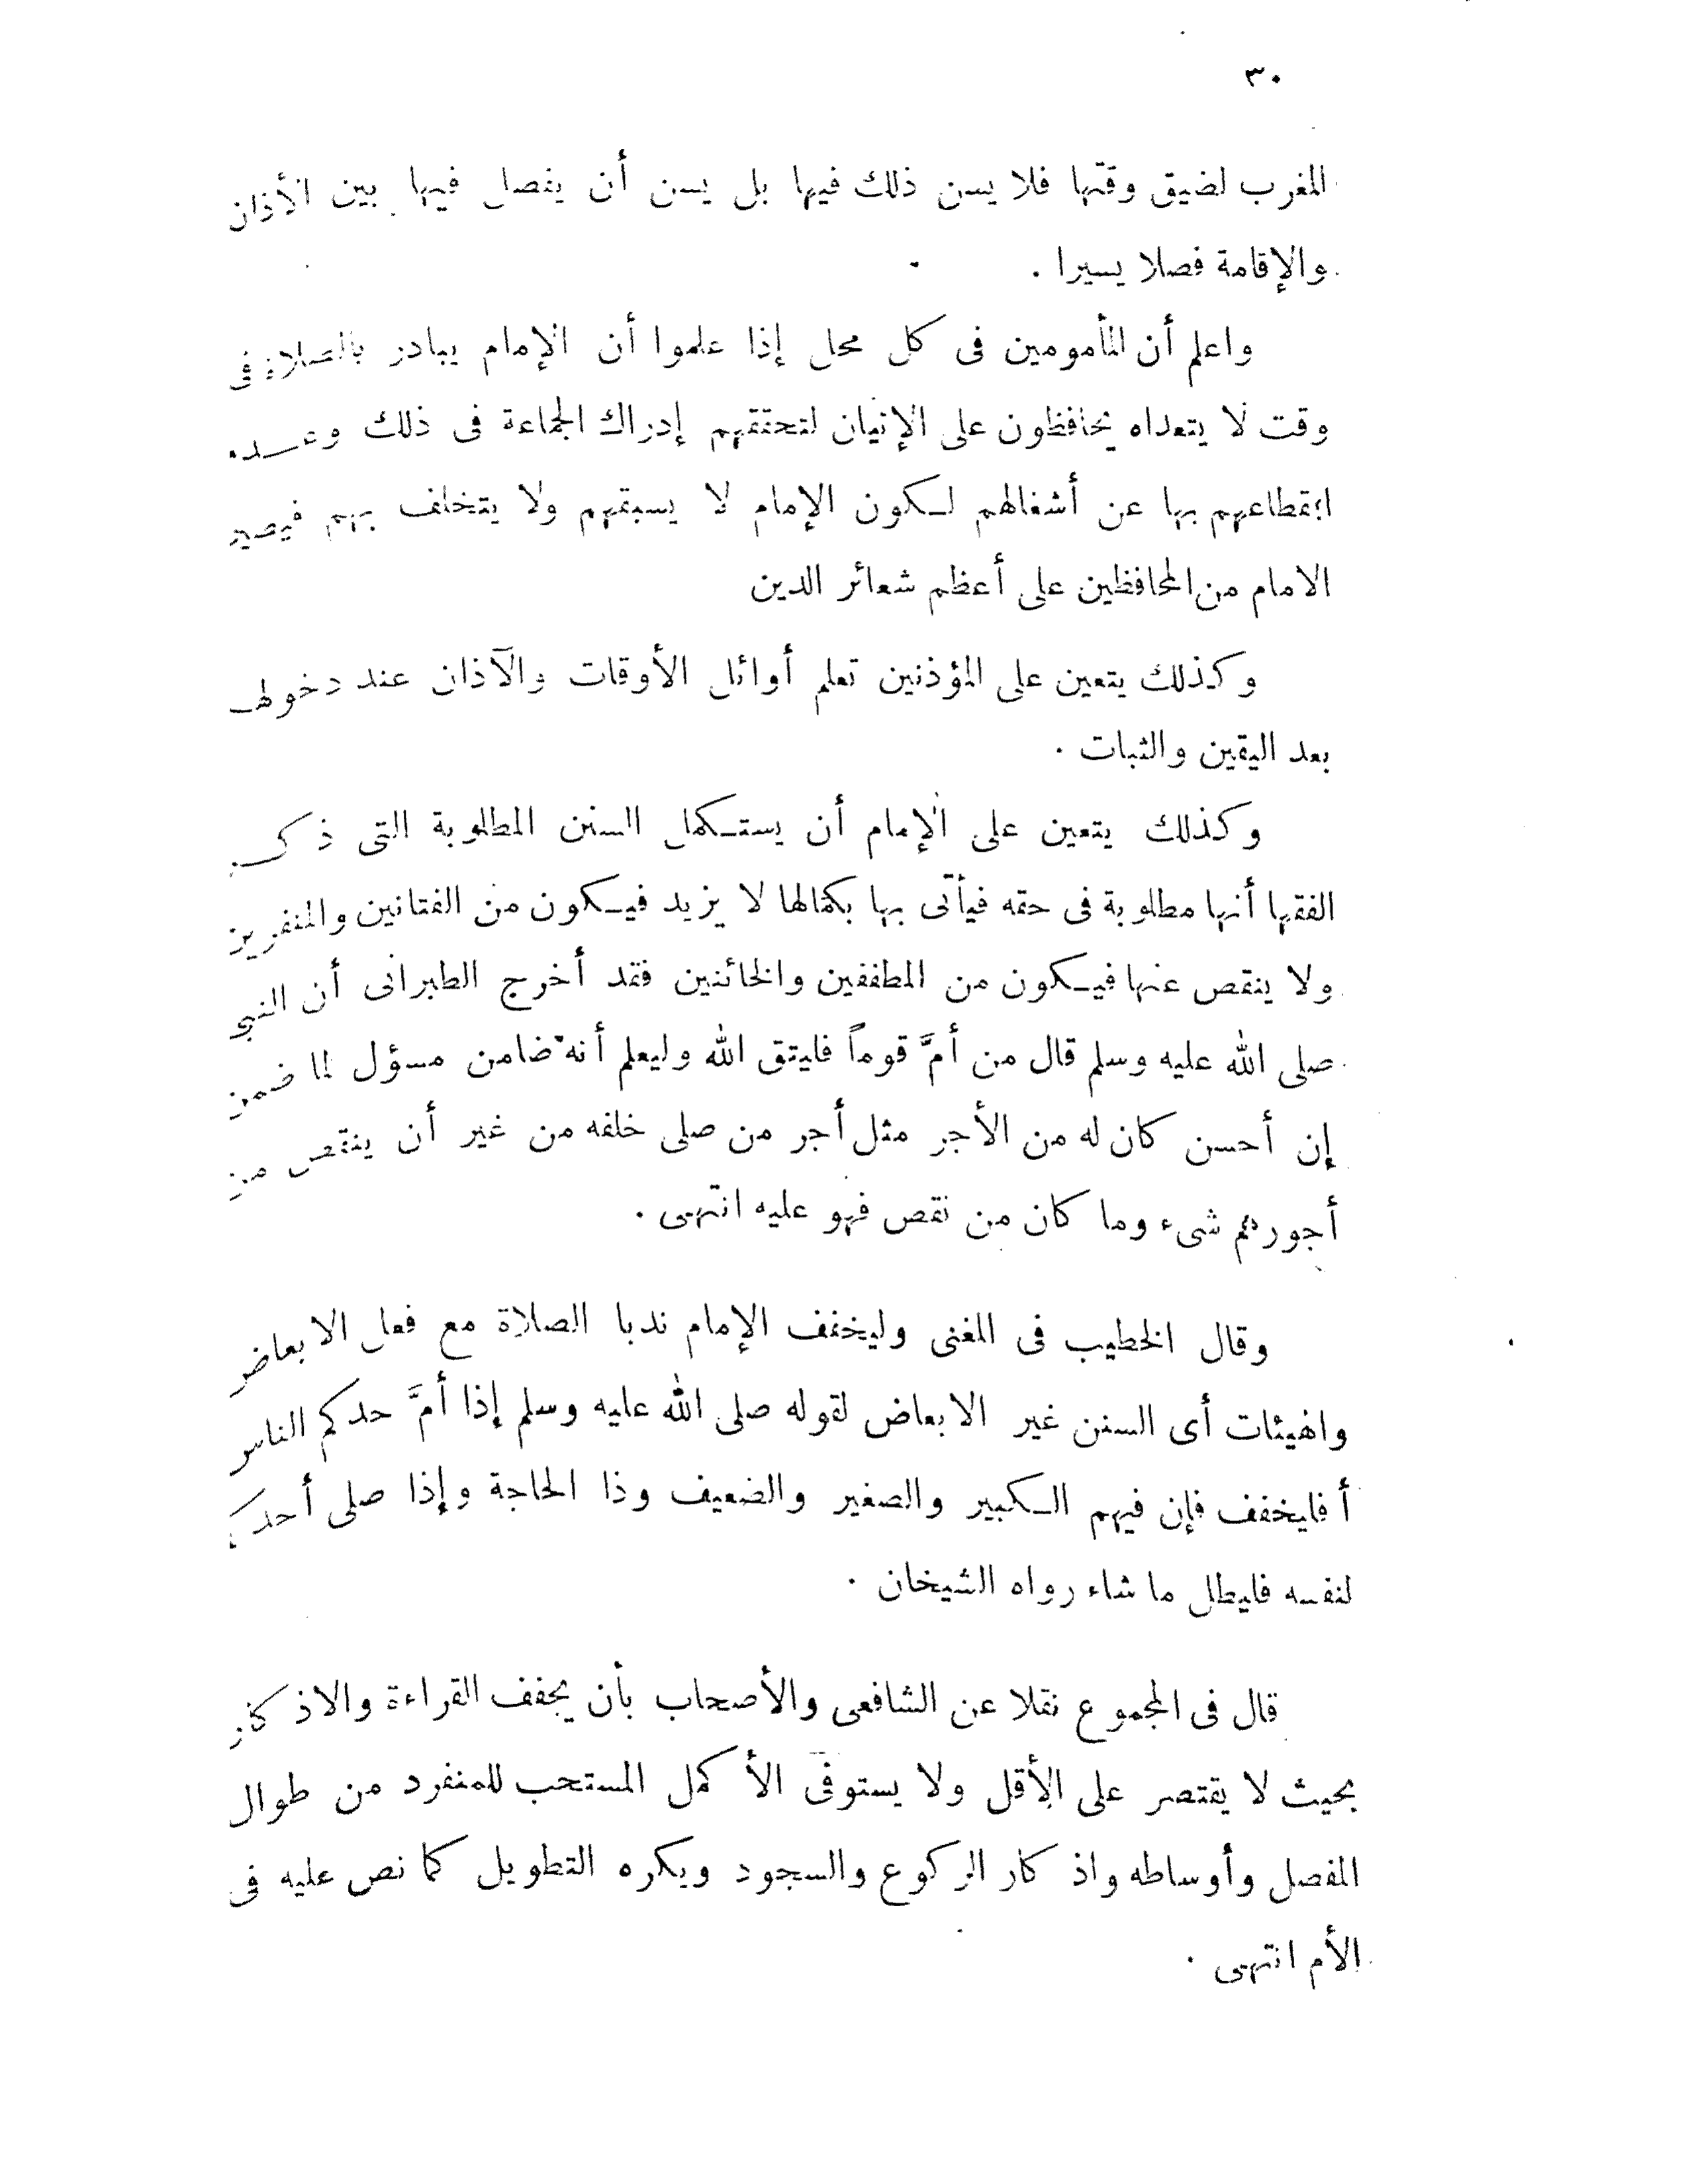 ٣٠
المغرب لضيق وقتها فلا يسن ذلك فيها بل يسن أن يفصل فيها بين الأذان
والإقامة فصلا يسيرا .
واعلم أن المأمومين فى كل محل إذا علموا أن الإمام يبادر بالصلاة فى
وقت لا يتعداه يحافظون على الإتيان لتحققهم إدراك الجماعة فى ذلك وعـــد
انقطاعهم بها عن أشغالهم لـكون الإمام لا يسبقهم ولا يتخلف بهم فيصير
الامام من المحافظين على أعظم شعائر الدين
وكذلك يتعين على المؤذنين تعلم أوائل الأوقات والآذان عند دخولهـ
بعد اليقين والثبات .
وكذلك يتعين على الإمام أن يستـكمل السنن المطلوبة التى ذكـ
الفقها أنها مطلوبة فى حقه فيأتى بها بكمالها لا يزيد فيـكون من الفتانين والمنفرين
ولا ينقص عنها فيـكون من المطففين والخائنين فقد أخرج الطبرانى أن النبي
صلى الله عليه وسلم قال من أمَّ قوماً فليتق الله وليعلم أنه ضامن مسؤل لما ضمن
إن أحسن كان له من الأجر مثل أجر من صلى خلفه من غير أن ينقص من
أجورهم شىء وما كان من نقص فهو عليه انتهى .
وقال الخطيب فى المغنى وليخفف الإمام ندبا الصلاة مع فعل الابعاض
والهيئات أى السنن غير الابعاض لقوله صلى الله عليه وسلم إذا أمَّ حدكم الناس
أ فليخفف فإن فيهم الـكبير والصغير والضعيف وذا الحاجة وإذا صلى أحدكم
لنفسه فليطل ما شاء رواه الشيخان .
قال فى المجموع نقلا عن الشافعى والأصحاب بأن يخفف القراءة والاذكار
بحيث لا يقتصر على الأقل ولا يستوفى الأكمل المستحب للمنفرد من طوال
المفصل وأوساطه واذكار الركوع والسجود ويكره التطويل كما نص عليه فى
الأم انتهى .